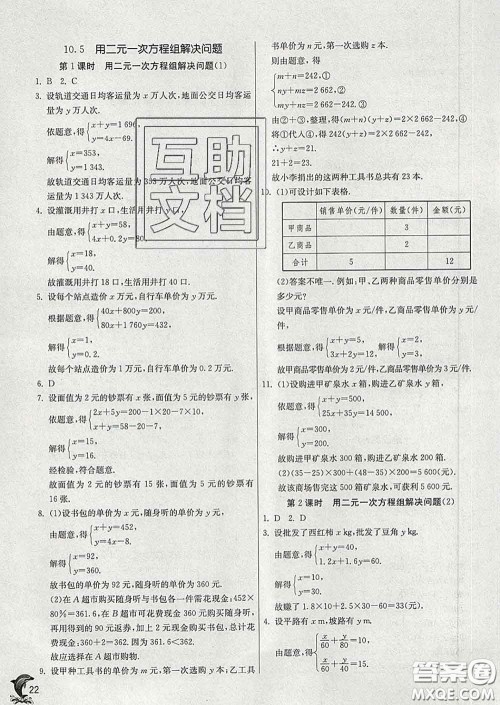 10.5 用二元一次方程组解决问题
第1课时 用二元一次方程组解决问题(1)
1. B 2. C
3. 设轨道交通日均客运量为 x 万人次,地面公交日均客运量为 y 万人次.
依题意,得{x+y=1 696,
x=4y-69.
解得{x=353,
y=1 343.
故轨道交通日均客运量为 353 万人次,地面公交日均
4. 设灌溉用井打 x 口,生活用井打 y 口.
由题意,得{x+y=58,
4x+0.2y=80.
解得{x=18,
y=40.
故灌溉用井打 18 口,生活用井打 40 口.
5. 设每个站点造价 x 万元,自行车单价为 y 万元.
根据题意,得{40x+800y=200,
80x+1760y=432.
解得{x=1,
y=0.2.
故每个站点造价为 1 万元,自行车单价为 0.2 万元.
6. D
7. 设面值为 2 元的钞票有 x 张,面值为 5 元的钞票有 y 张,
依题意,得{2x+5y=200-1×20-7×10,
x+y=58-20-7.
解得{x=15,
y=16.
经检验,符合题意.
故面值为 2 元的钞票有 15 张,面值为 5 元的钞票有
16 张.
8. (1)设书包的单价为 x 元,随身听的单价为 y 元.
由题意,得{x+y=452,
y=4x-8.
解得{x=92,
y=360.
故书包的单价为 92 元,随身听的单价为 360 元.
(2)在 A 超市购买随身听与书包各一件需花现金:452×
80%=361.6,在 B 超市可花费现金 360 元购买随身
听,再用得到的 90 元返券,加上 2 元现金购买书包,总
计花费现金:360+2=362. 因为 361.6<362.
故应选择在 A 超市购物.
9. 设甲种工具书的单价为 m 元,第一次选购 y 本;乙工具
书单价为 n 元,第一次选购 x 本.
由题意,得
{m+n=242,①
ny+my=2 662-mz,②
ny+mz=2 662-nz,③
由②+③,整理,得(m+n)(y+z)=2×2 662-242z,④
将①代入④,得 242(y+z)=2×2 662-242z.
∴y+z=21.
故小李捐出的这两种工具书总共有 23 本.
1. (1)可设计如下表格.
销售单价(元/件) 数量(件) 金额(元)
甲商品 3
乙商品 2
合计 5 12
(2)答案不唯一. 例如:甲、乙两种商品零售单价分别是
多少元?
设甲商品零售单价为 x 元/件,乙商品零售单价为 y 元/件.
根据题意,得{x+y=5,
3x+2y=12.
解得{x=2,
y=3.
故甲商品零售单价为 2 元/件,乙商品零售单价为 3 元/件.
(1)设购进甲矿泉水 x 箱,购进乙矿泉水 y 箱.
依题意,得{x+y=500,
25x+35y=14 500.
解得{x=300,
y=200.
故购进甲矿泉水 300 箱,购进乙矿泉水 200 箱.
(2)(35-25)×300+(48-35)×200=5 600(元).
故该商场售完这 500 箱矿泉水,可获利 5 600 元.
第 2 课时 用二元一次方程组解决问题(2)
1. D 2. D
3. 设批发了西红柿 x kg,批发了豆角 y kg.
由题意,得{x+y=40,
1.2x+1.6y=60.
解得{x=10,
y=30.
故赚了 1.8×10+2.5×30-60=33(元).
4. 设平路有 x m,坡路有 y m.
由题意,得
x/60+y/80=10,
x/60+y/40=15.
22
互助
文档
答案圈
MXQE.COM